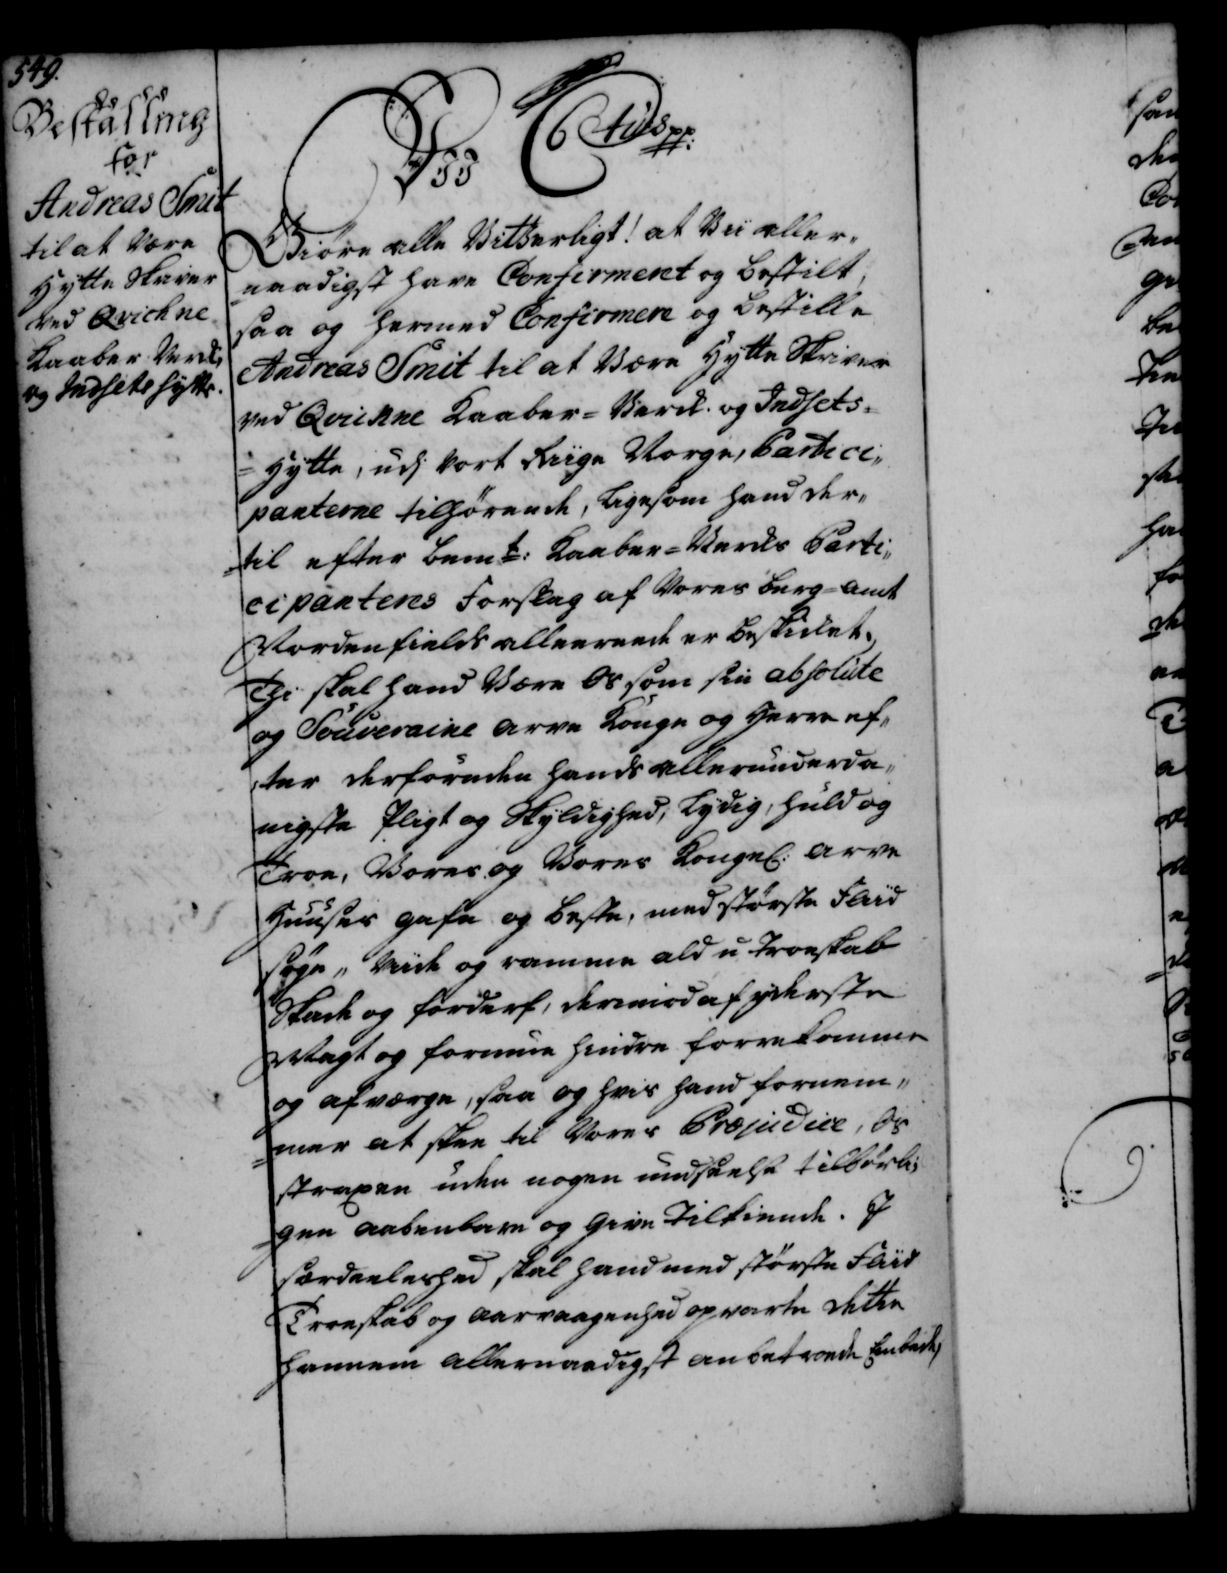 549.
Bestalling
for
Andreas Smit
til at være
Hytte Skriver
ved Qvickne
Kaaber-Verk,
og Indsets Hytte.
Vii C 6tus pp:
Giöre alle Vitterligt! at Vii aller„
naadigst have Confirmeret og bestilt,
saa og hermed Confirmere og bestille
Andreas Smit til at være Hytte Skriver
ved Qvickne Kaaber=Verck. og Indsets=
=Hytte, udj vort Riige Norge, Partici„
panterne tilhörende, ligesom hand der„
=til efter bemte: Kaaber=Verks Parti„
cipanteres Forslag af Vores berg=Amt
Nordenfields allereede er beskicket.,
Thi skal hand være Os som sin absolute
og Souveraine Arve Konge og Herre ef„
ter derforuden hands allerunderda„
nigste Pligt og Skyldighed, lydig, huld og
Troe, Vores og Vores Kongel: Arve
Huuses gafn og beste, med störste Fliid
söge„ viide og ramme ald u-troeskab
Skade og forderf, derimod af yderste
Magt og formue hindre forrekomme
og afværge, saa og hvis hand fornem„
=mer at skee til Vores Præjudice, Os
straxen uden nogen undseelse tilbörli;
=gen aabenbare og give Tilkiende. I
særdeeleshed, skal hand med störste Fliid
Troeskab og aarvaagenhed opvarte dette
hannem allernaadigst anbetroede Embede,